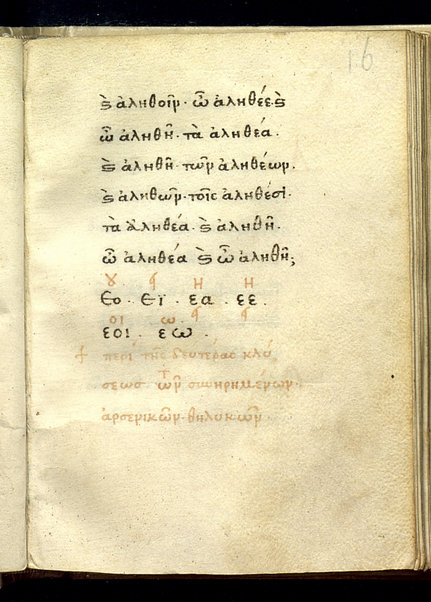 16
ϗ ἀληθοῖν· ὦ ἀληθέε ϗ
ὦ ἀληθῆ· τὰ ἀληθέα·
ϗ ἀληθῆ· τῶν ἀληθέων·
ϗ ἀληθῶν· τοῖς ἀληθέσι·
τὰ ἀληθέα· ϗ ἀληθῆ·
ὦ ἀληθέα ϗ ὦ ἀληθῆ;
ȣ η η
εο · εϊ · εα · εε ·
οι ω
εοι · εω ·
περὶ τῆς δευτέρας κλί
σεως τῶν συνῃρημένων·
ἀρσενικῶν· θηλυκῶν·